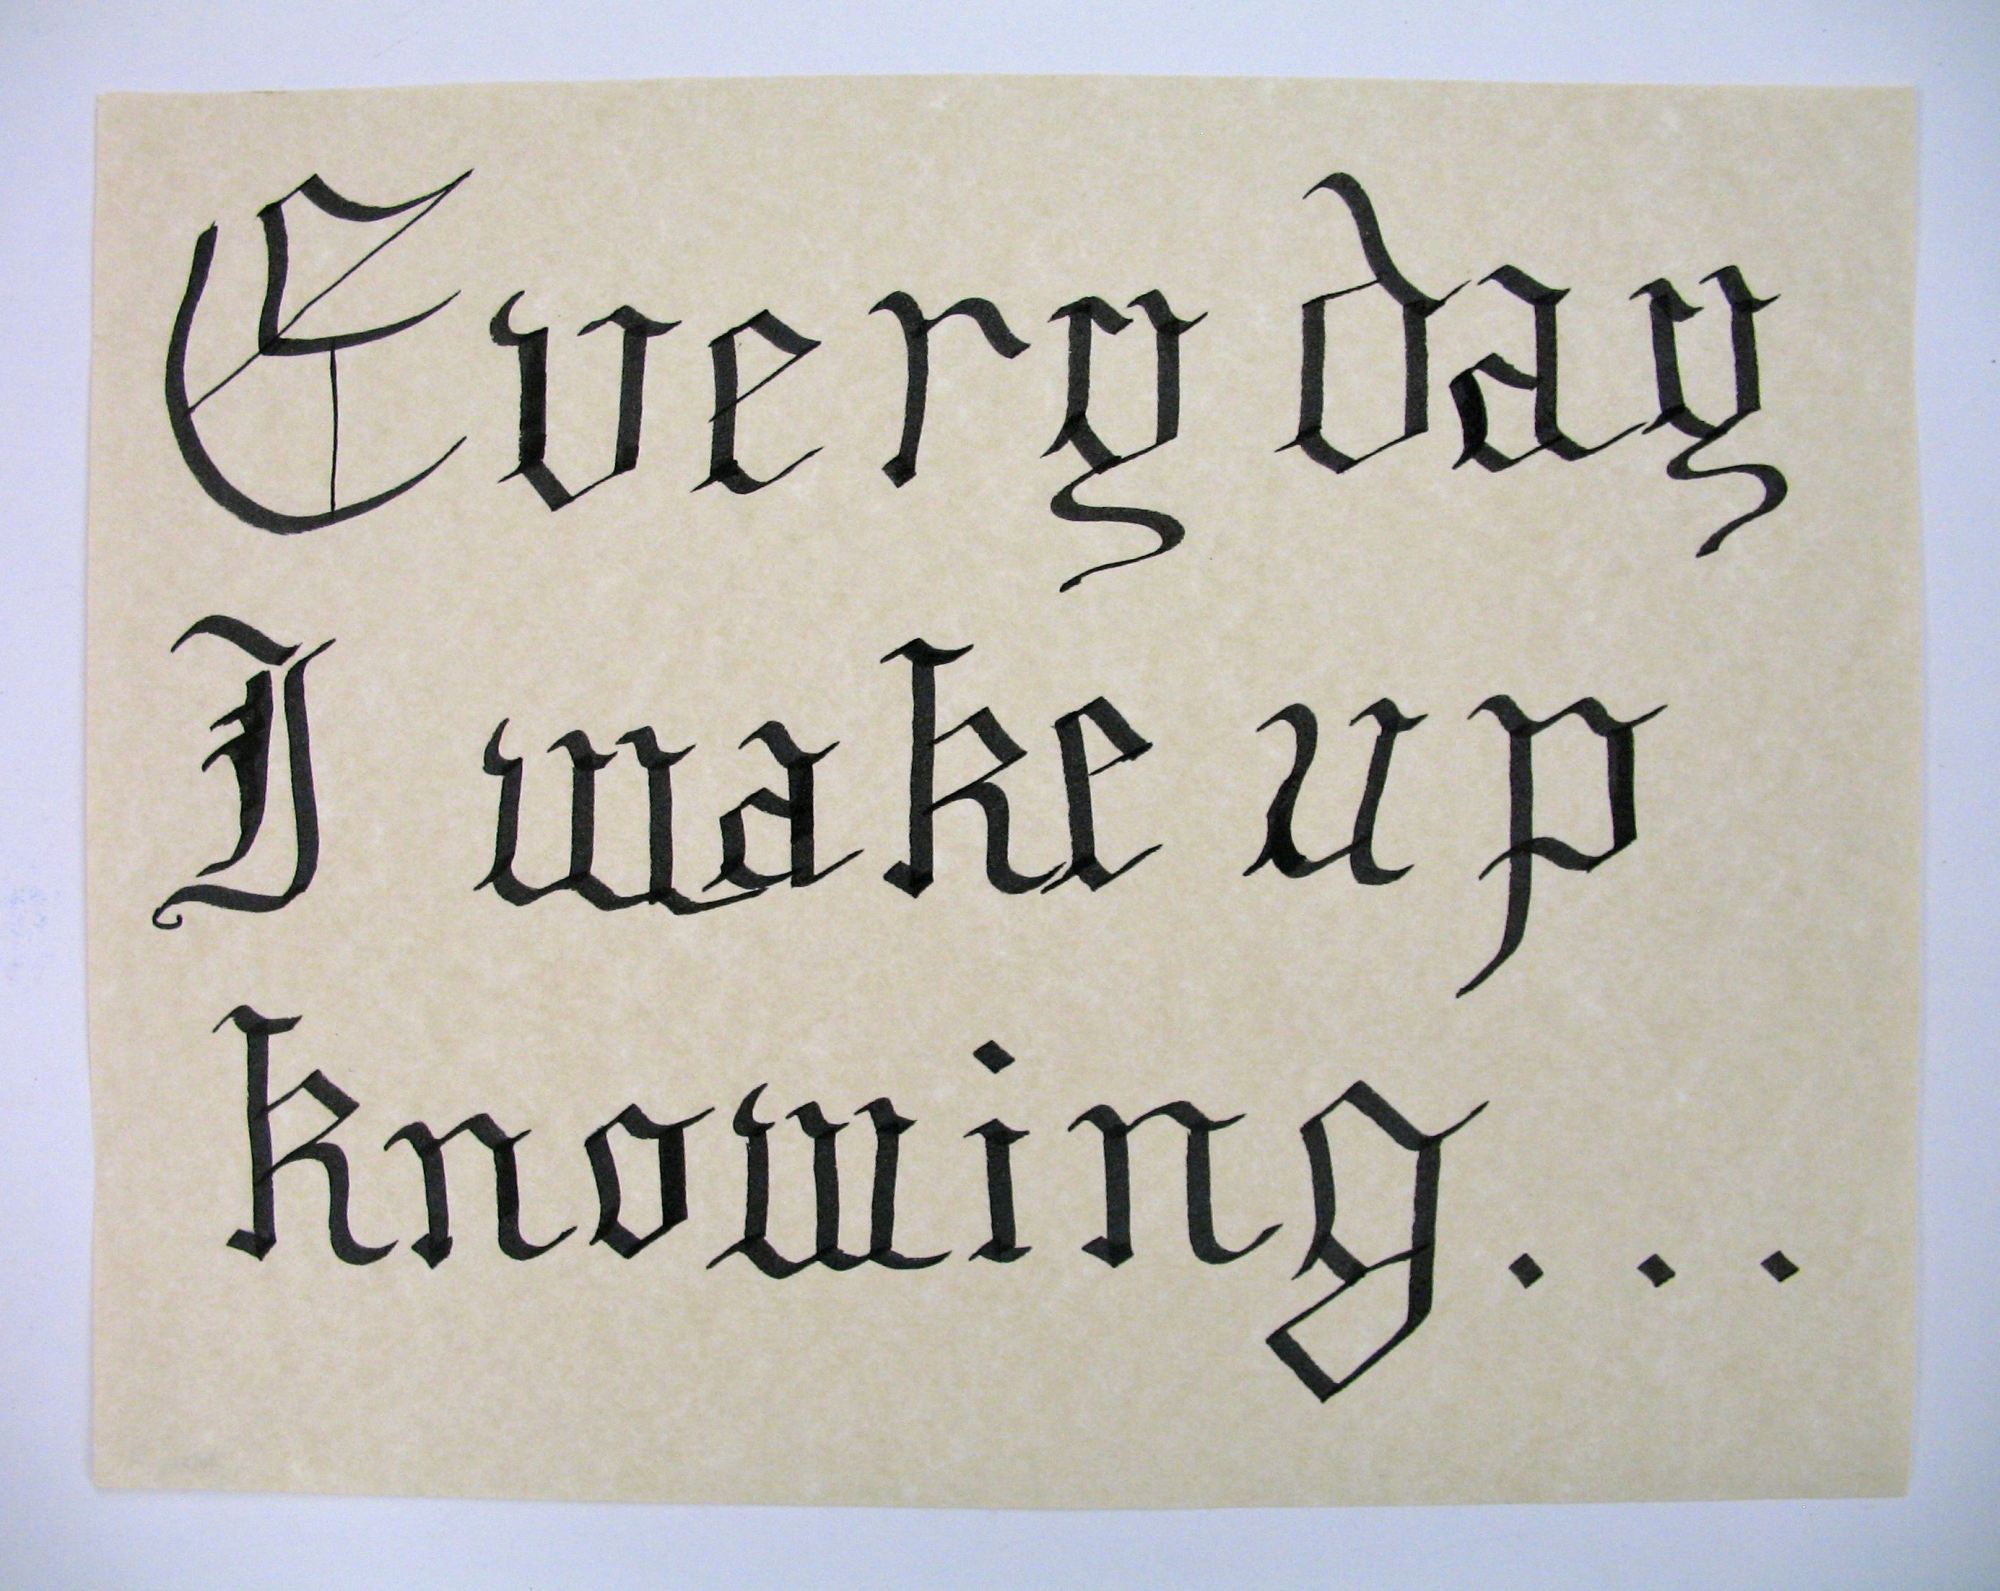 Every day
I wake up
knowing...